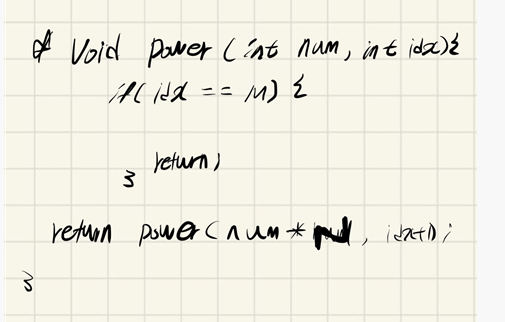 Void power (int num, int idx){
if( idx == M) {
return;
}
return power(num * N, idx+1);
}